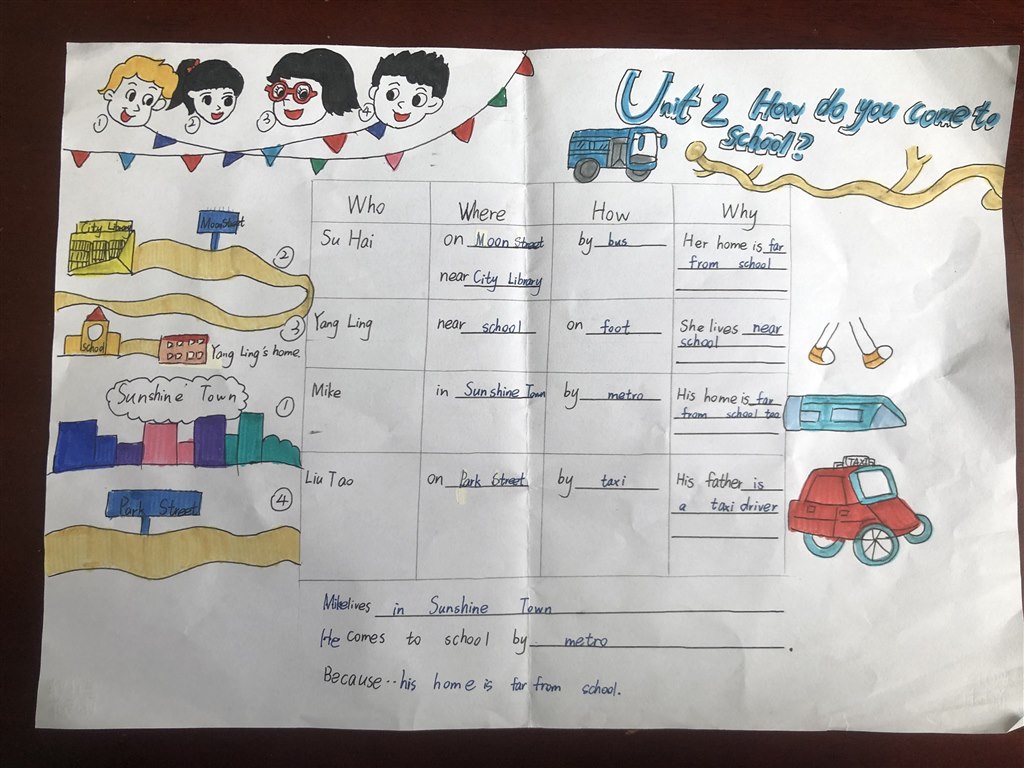 ① ② ③ ④
Unit 2 How do you come to
school?
City Library
Moon Street
②
③
School
Yang Ling's home
Sunshine Town
①
Park Street
④
Who Where How Why
Su Hai on Moon Street by bus Her home is far
near City Library from school
Yang Ling near school on foot She lives near
school
Mike in Sunshine Town by metro His home is far
from school too
Liu Tao on Park Street by taxi His father is
a taxi driver
TAXI
Mike lives in Sunshine Town
He comes to school by metro.
Because..his home is far from school.